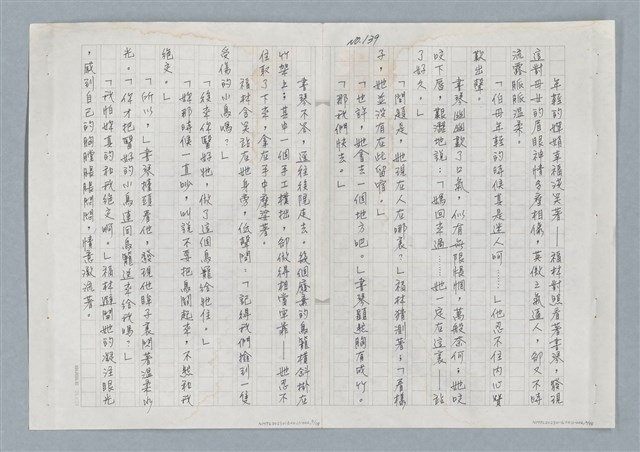 NO.139
年輕的媒娟幸福淺笑著——福林對照看著李琴，發現
這對母女的眉眼神情多麼相像，英傲之氣逼人，卻又不時
流露脈脈溫柔。
「伯母年輕的時候真是迷人呵……」他忍不住內心贊
歎出聲。
李琴幽幽歎了口氣，似有無限悵惘，萬般奈何；她咬
咬下唇，艱澀地說：「媽回來過……她一定在這裏——站
了好久。」
「問題是，她現在人在哪裏？」福林猜測著：「看樣
子，她並沒有在此留宿。」
「也許，她會去一個地方吧。」李琴顯然胸有成竹。
「那我們快去。」
李琴不答，逕往後院走去。幾個廢棄的鳥籠檯斜掛在
竹架上；其中一個手工樸拙，卻做得相當牢靠——她忍不
住取了下來，拿在手中摩娑著。
福林含笑站在她身旁，低聲問：「記得我們撿到一隻
受傷的小鳥嗎？」
「後來你醫好牠，做了這個鳥籠給牠住。」
「妳那時候一直吵，叫說不要把鳥關起來，不然和我
絕交。」
「所以，」李琴擡頭看他，發現他眸子裏閃著溫柔水
光，「你才把醫好的小鳥連同鳥籠送來給我嗎？」
「我怕妳真的和我絕交啊。」福林避開她的凝注眼光
，感到自己的胸膛腸腸鬧鬧，情意激流著。